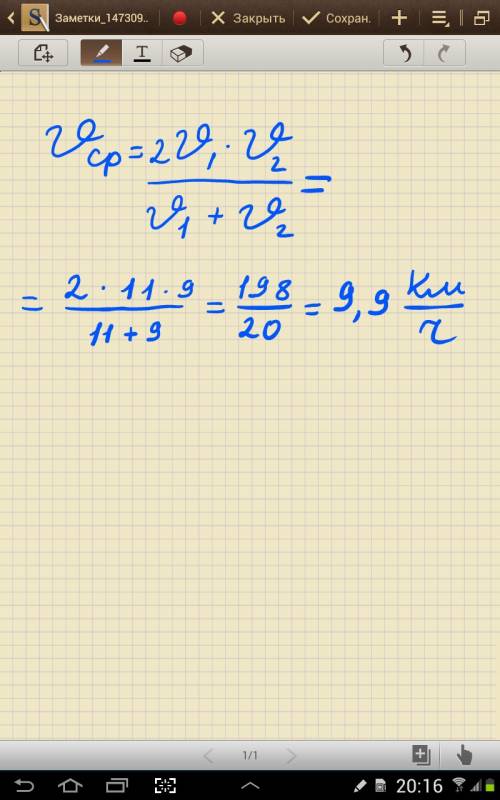 Заметки_147309.. Закрыть Сохран.
T
𝒱ср = 2𝒱1 · 𝒱2 / 𝒱1 + 𝒱2 =
= 2 · 11 · 9 / 11 + 9 = 198 / 20 = 9,9 км / ч
1/1
20:16